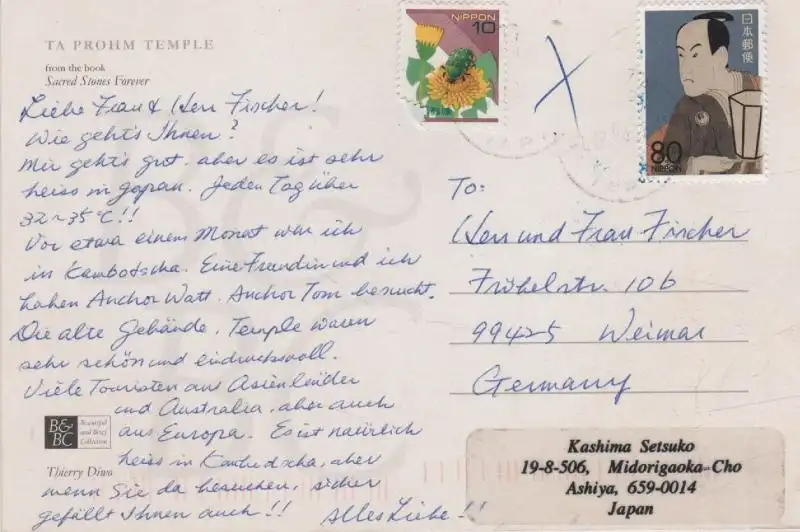 TA PROHM TEMPLE
from the book
Sacred Stones Forever
Liebe Frau & Herr Fischer!
Wie geht's Ihnen?
Mir geht's gut. aber es ist sehr
heiss in Japan. Jeden Tag über
32~35°C!!
Vor etwa einem Monat war ich
in Kambotscha. Eine Freundin und ich
haben Anchor Watt. Anchor Tom besucht.
Die alte Gebände. Temple waren
sehr schön und eindrucksvoll.
Viele Touristen aus Asienländer
und Australia, aber auch
aus Europa. Es ist natürlich
heiss in Kambodscha, aber
wenn Sie da besuchen, sicher
gefällt Ihnen auch!!
Alles Liebe!!
B&
BC
Beautiful
and Brief
Collection
Thierry Diwo
NIPPON
10
日本郵便
80
NIPPON
To:
Herr und Frau Fischer
Fröbelstr. 10b
99425 Weimar
Germany
Kashima Setsuko
19-8-506, Midorigaoka-Cho
Ashiya, 659-0014
Japan